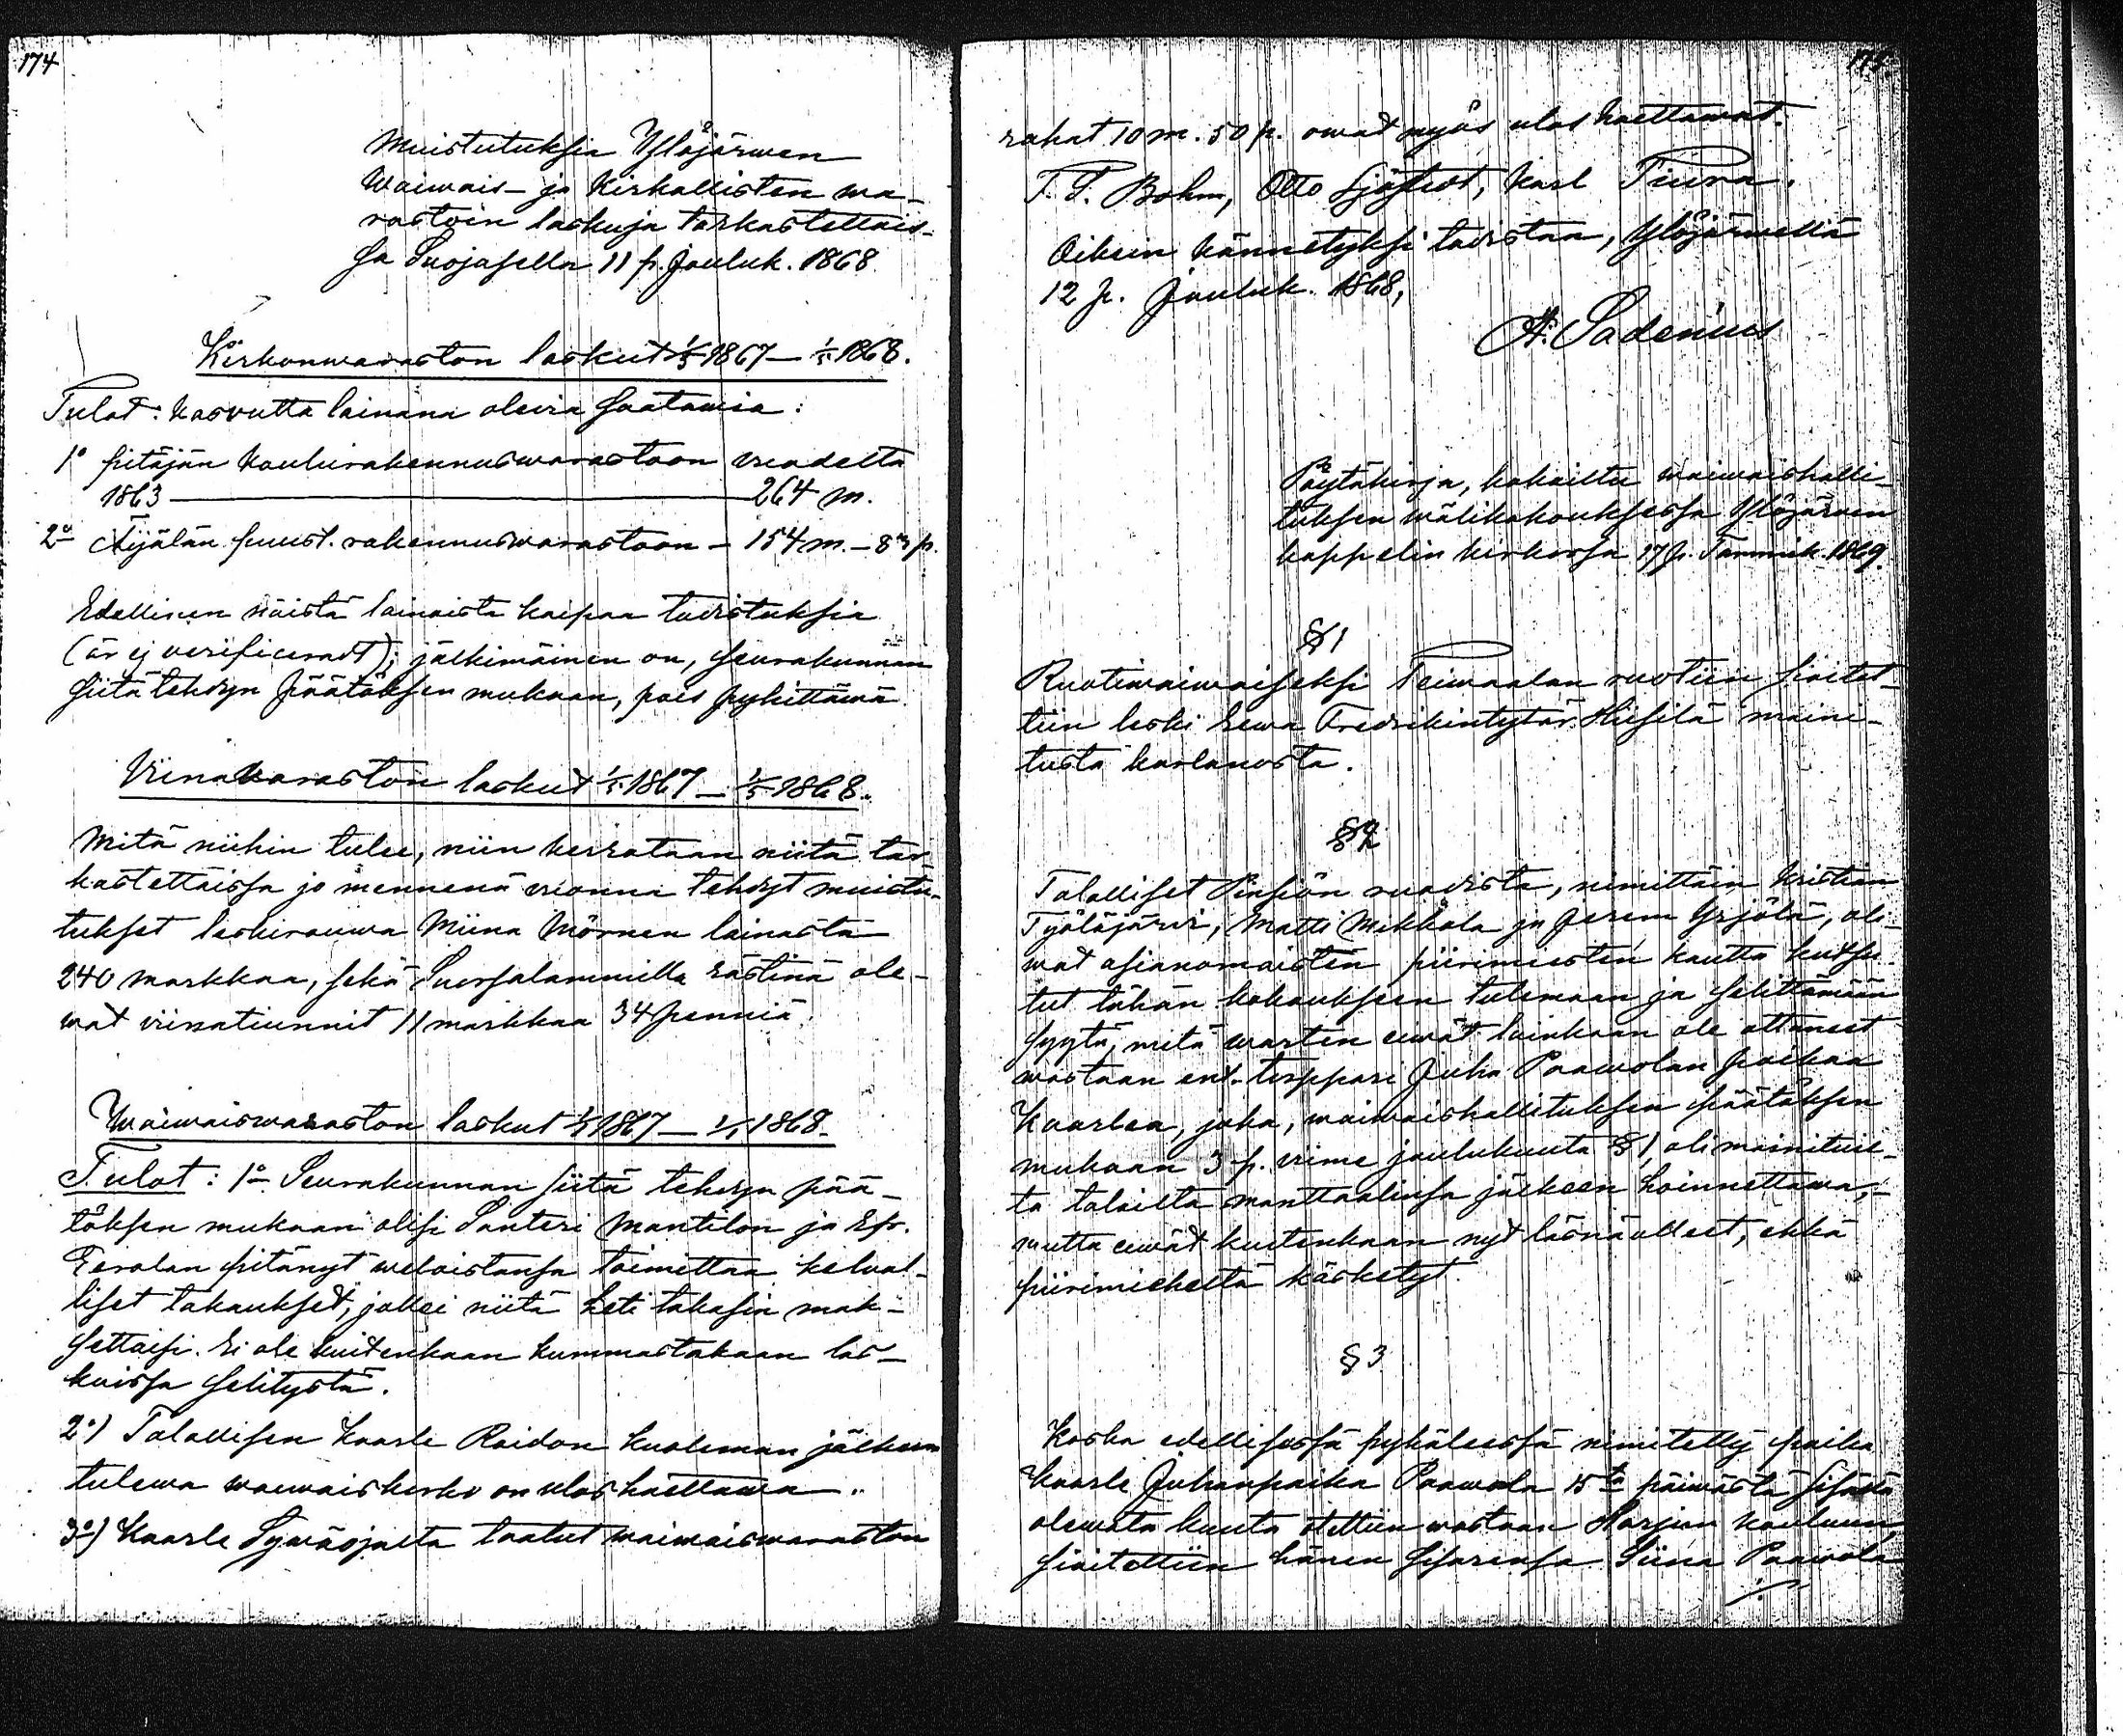 174
Muistutuksia Ylöjärwen
Waiwais- ja Kirkallisten wa-
rastoin laskuja tarkastettais-
sa Suojasella 11 p. Jouluk. 1868.
Kirkonwaraston laskut 1/5 1867 — 1/5 1868.
Tulot: kasvutta lainana olevia saatawia:
1° pitäjän koulurakennuswarastoon vuodelta
1863 — 264 m.
2° Äijälän puust. rakennuswarastoon - 154 m. - 83 p.
Edellinen näistä lainoista kaipaa todistuksia
(är ej verificeradt); jälkimäinen on, seurakunnan
siitä tehdyn päätöksen mukaan, pois pyhittäwä.
Viinawaraston laskut 1/5 1867 — 1/5 1868.
Mitä niihin tulee, niin kerrataan niitä tar-
kastettaissa jo mennenä vuonna tehdyt muistu-
tukset leskirouwa Miina Mörnen lainasta
240 markkaa, sekä Suorsalammilla rästinä ole-
wat viinatiunnit 11 markkaa 34 penniä.
Waiwaiswaraston laskut 1/5 1867 — 1/5 1868.
Tulot: 1° Seurakunnan siitä tehdyn pää-
töksen mukaan olisi Santeri Mantilan ja Efr.
Eerolan pitänyt weloistansa toimittaa kelwol-
liset takaukset, jollei niitä heti takasin mak-
settaisi. Ei ole kuitenkaan kummastakaan las-
kuissa selitystä.
2°) Talollisen Kaarle Raidon kuoleman jälkeen
tulewa waiwaisherko on ulos haettawa.
3°) Kaarle Sywäojalta taatut waiwaiswaraston
175
rahat 10 m. 50 p. owat myös ulos haettawat.
T. T. Bohm, Otto Sjöstedt, Karl Tiura.
Oikein kännetyksi todistaa, Ylöjärwellä
12 p. Jouluk. 1868,
A. Sadenius
Pöytäkirja, kokoiltu waiwaishalli-
tuksen wälikokouksessa Ylöjärwen
kappelin kirkossa 17 p. Tammik. 1869.
§ 1
Ruotiwaiwaiseksi Teiwaalan ruotiin sioitet-
tiin leski Eewa Fredrikintytär Hiisilä maini-
tusta kartanosta.
§ 2
Talolliset Pinsiön ruodista, nimittäin Kristian
Työläjärvi, Matti Mikkola ja Jerem Yrjölä, oli-
wat asianomaisten piirimiesten kautta kutsu-
tut tähän kokoukseen tulemaan ja selittämään
syytä, mitä warten eiwät lainkaan ole ottaneet
wastaan ent. torppari Juha Paawolan poikaa
Kaarlea, joka, waiwaishallituksen päätöksen
mukaan 3 p. viime joulukuuta § 1, oli mainituil-
ta taloilta manttaalinsa jälkeen hoinnettawa,-
mutta eiwät kuitenkaan nyt läsnä olleet, ehkä
piirimieheltä käsketyt.
§ 3
Koska edellisessä pykäleessä nimitetty poika
Kaarle Juhanpoika Paawola 15ta päiwästä sisästä
olewata kuuta otettiin wastaan Harjun kouluun,
sioitettiin hänen sisarensa Siina Paawola
./.